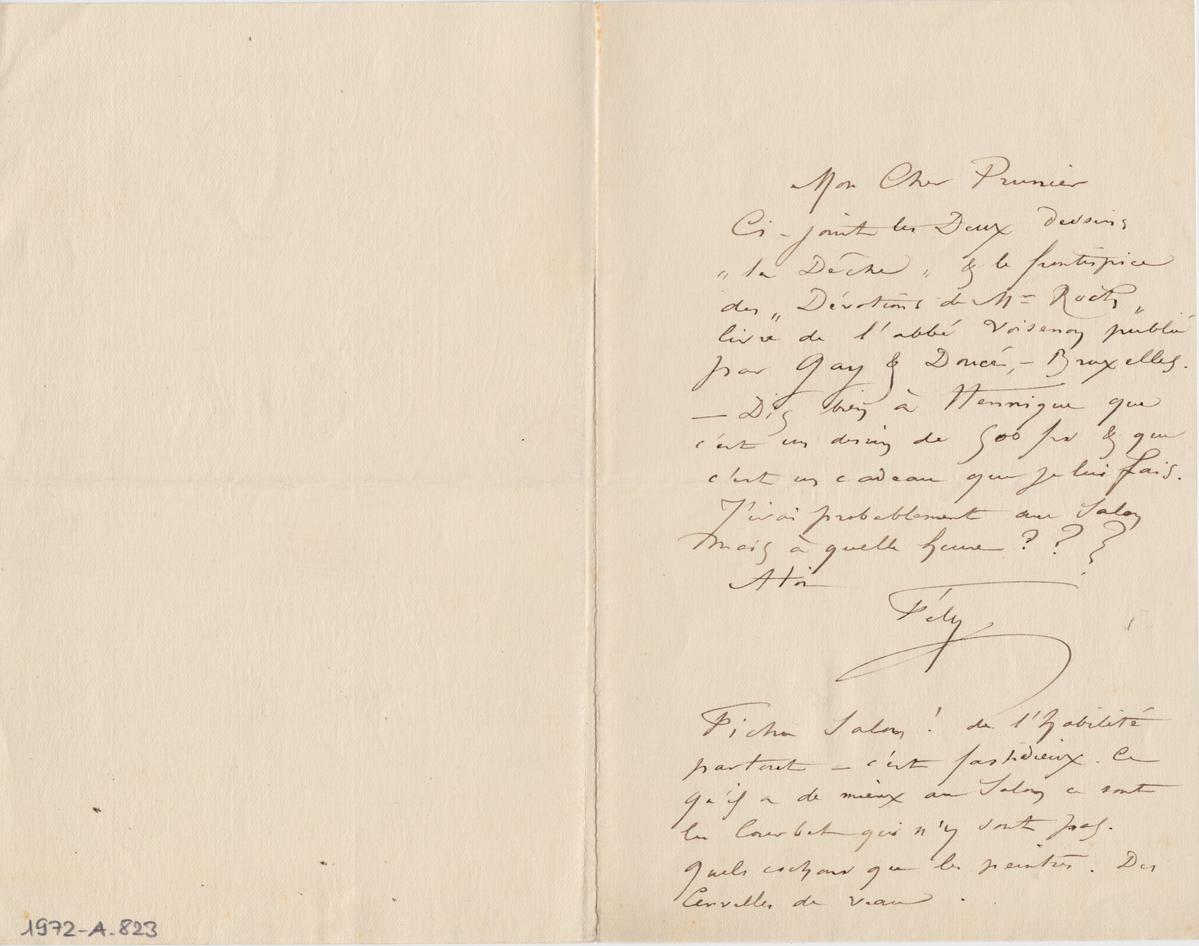 Mon Cher Prunier
Ci-joint les Deux dessins
„ la Dêche „ & le frontispice
des „ Dévotions de Me Roch „
livre de l'abbé Voisenon publié
par Gay & Doucé, – Bruxelles.
— Dis bien à Hennique que
c'est un dessin de 500 frs & que
c'est un cadeau que je lui fais.
J'irai probablement au Salon
mais à quelle heure ? ? ?
A toi
Fély
Fichu Salon ! de l'habilité
partout – c'est fastidieux. Ce
qu'il a de mieux au Salon ce sont
les Courbet qui n'y sont pas.
Quels cochons que les peintres. Des
Cervelles de veau .
1972-A.823